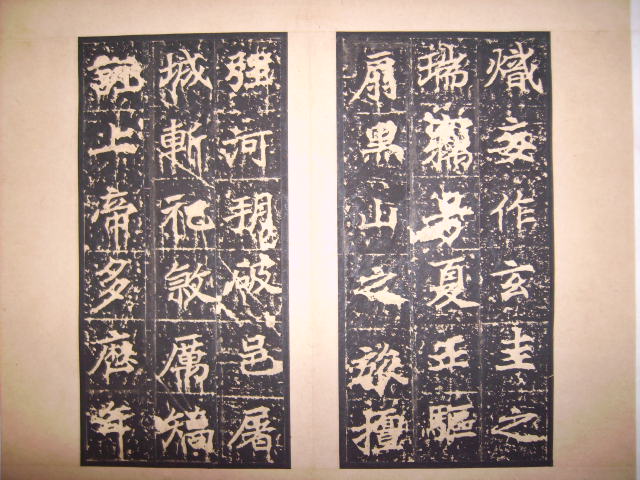 熾妄作玄圭之
瑞竊号夏正驅
扇黑山之旅擅
強河朔破邑屠
城斬祀煞厲矯
誣上帝多歷年